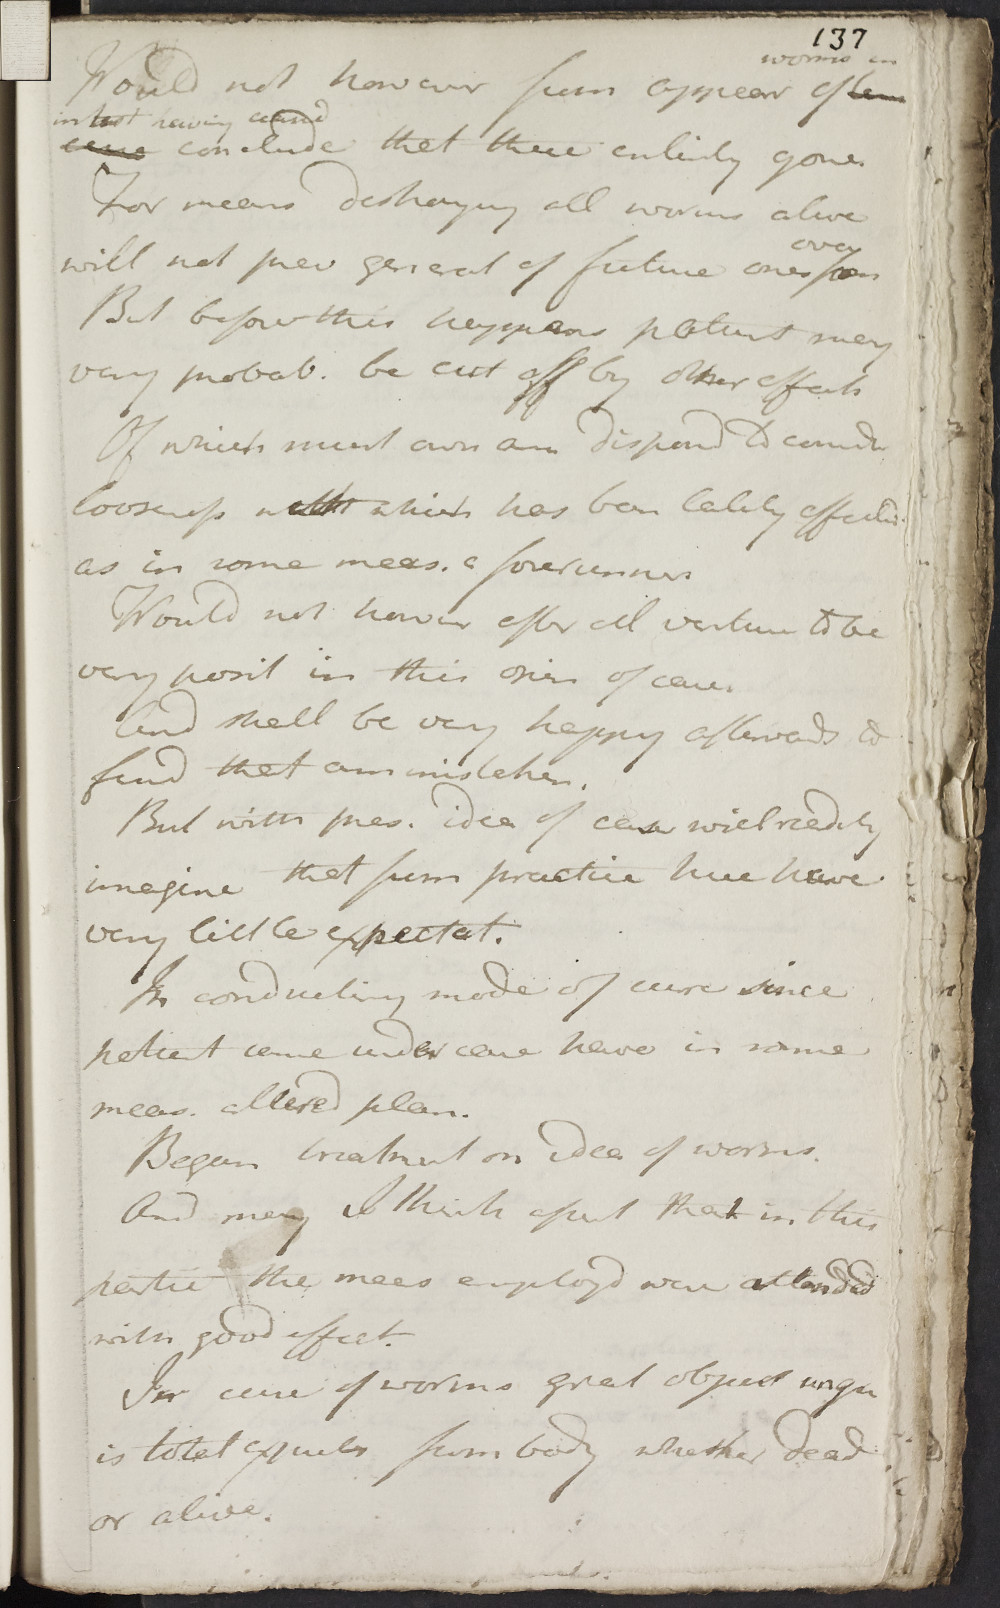 137
worms in
Would not however from appear of
in not having
conclude that these entirely gone.
For means destroying all worms alive
ova
will not prev generat of future ones from
But before this happens patient may
very probab. be cut off by other effects
Of which must own am dispond to consider
loosness which has been lately affected
as in some meas. a forerunner
Would not howev after all venture to be
very posit in this of case.
And shall be very happy afterwards to
find that am mistaken.
But with pres. idea of case will readily
imagine that from practice here have
very little expectat.
In conducting mode of cure since
patient came under care have in some
meas. altered plan.
Began treatment on idea of worms.
And may I think that in this
partic the meas employd were attended
with good effect.
In cure of worms great object
is total expuls from body whether dead
or alive.